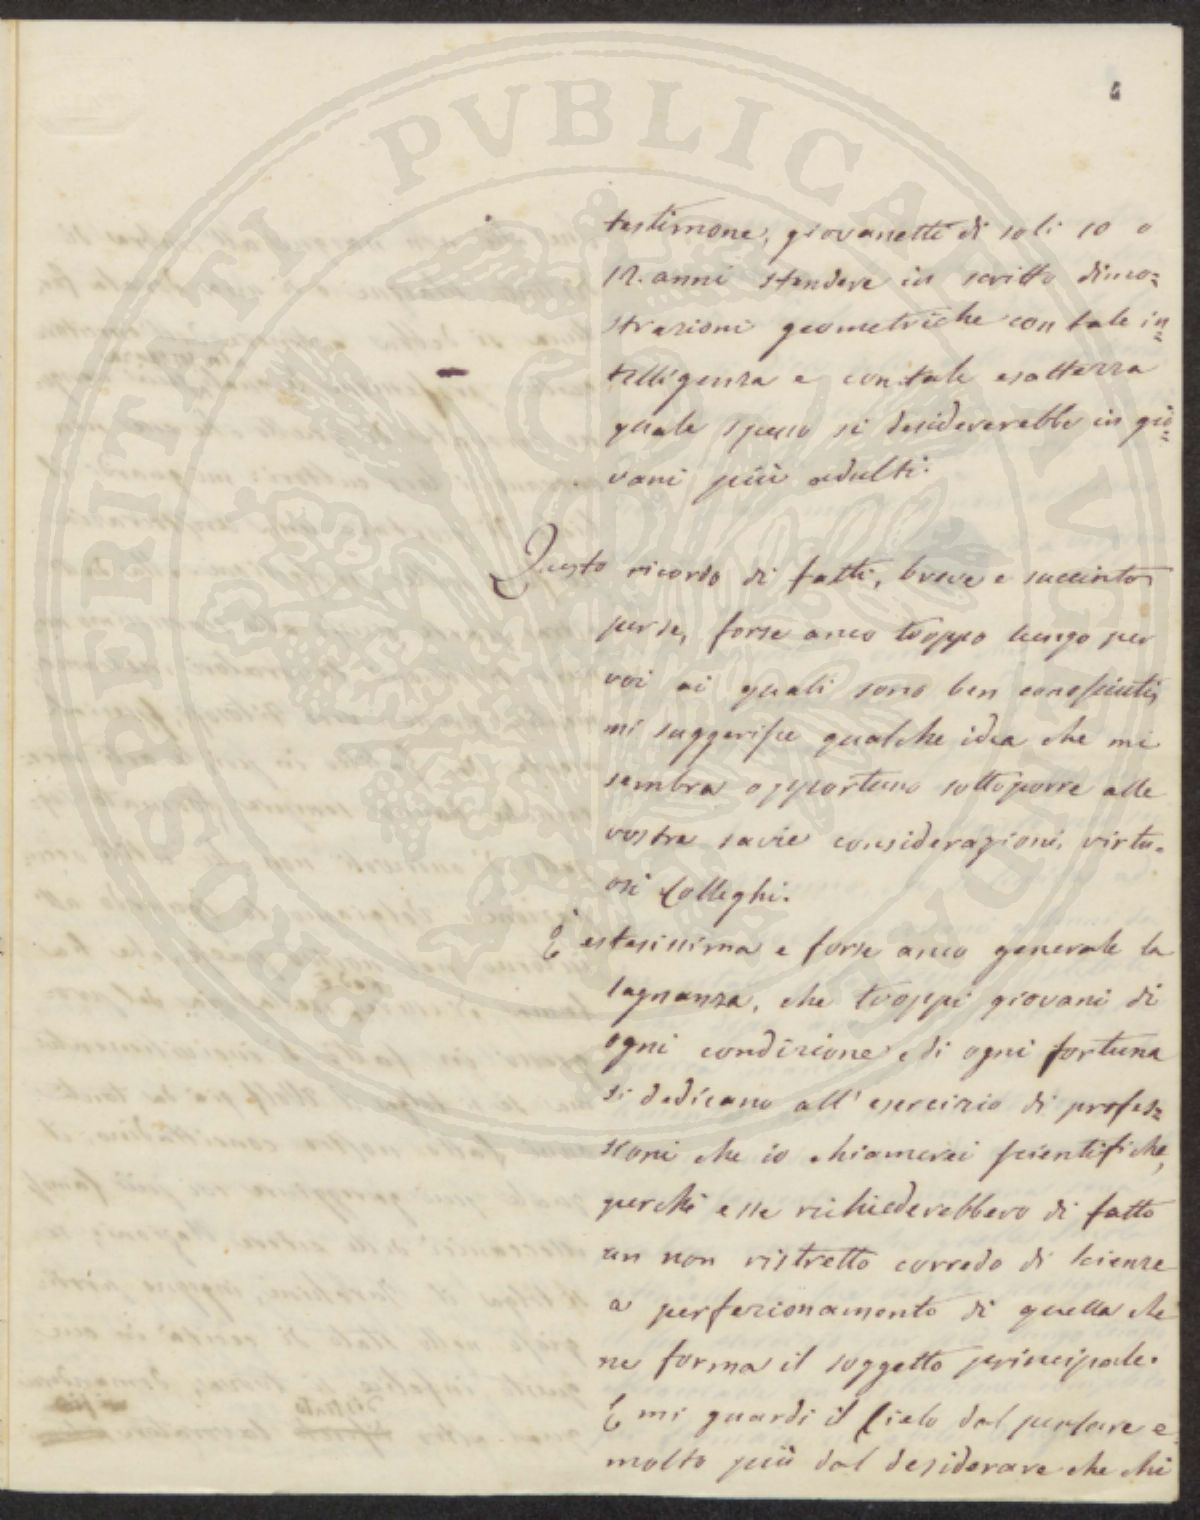 testimone, giovanetti di soli 10 o
12. anni stendere in scritto dimo=
strazioni geometriche con tale in=
telligenza e con tale esattezza
quale spesso si desidererebbe in gio=
vani più adulti.
Questo ricordo di fatti, breve e succinto
per se, forse anco troppo lungo per
voi ai quali sono ben conosciuti,
mi suggerisce qualche idea che mi
sembra opportuno sottoporre alle
vostre savie considerazioni, virtu-
osi Colleghi.
È estesissima e forse anco generale la
lagnanza, che troppi giovani di
ogni condizione e di ogni fortuna
si dedicano all' esercizio di profes=
sioni che io chiamerei scientifiche,
perchè esse richiederebbero di fatto
un non ristretto corredo di scienze
a perfezionamento di quella che
ne forma il soggetto principale.
E mi guardi il Cielo dal pensare e
molto più dal desiderare che chi
PROSPERITATI PVBLICAE AVGENDAE